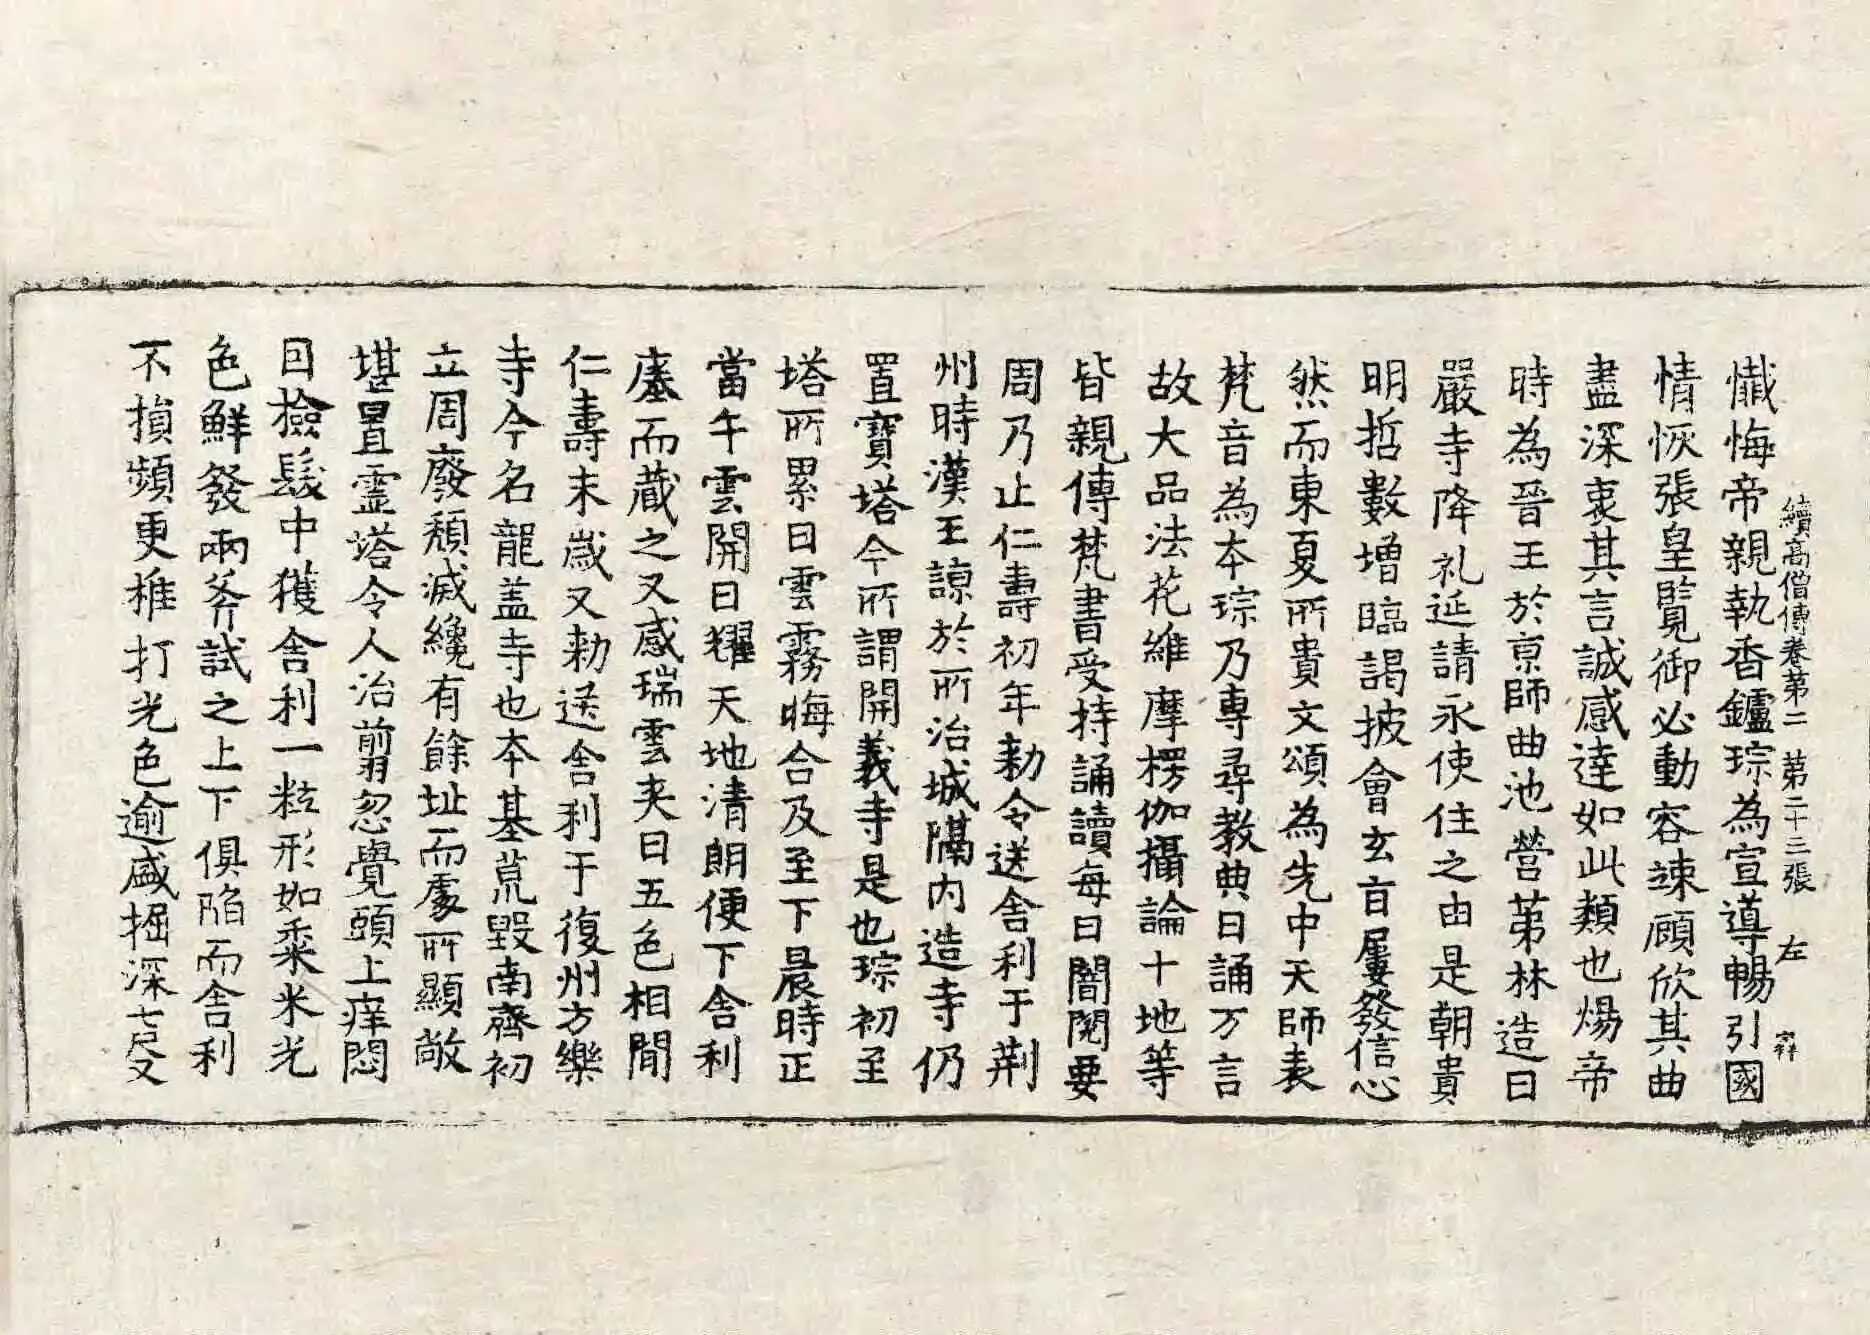 續高僧傳卷第二 第二十三張 左
懺悔帝親執香鑪琮為宣導暢引國
情恢張皇覽御必動容竦顧欣其曲
盡深衷其言誠感達如此類也煬帝
時為晉王於京師曲池營第林造日
嚴寺降礼延請永使住之由是朝貴
明哲數增臨謁披會玄旨屢發信心
然而東夏所貴文頌為先中天師表
梵音為本琮乃專尋教典日誦万言
故大品法花維摩楞伽攝論十地等
皆親傳梵書受持誦讀每日闇閱要
周乃止仁壽初年勑令送舍利于荊
州時漢王諒於所治城隔內造寺仍
置寶塔今所謂開義寺是也琮初至
塔所累日雲霧晦合及至下晨時正
當午雲開日耀天地清朗便下舍利
㙙而藏之又感瑞雲夾日五色相間
仁壽末歲又勑送舍利于復州方樂
寺今名龍盖寺也本基荒毀南齊初
立周廢頹滅纔有餘址而處所顯敞
堪置靈塔令人治翦忽覺頭上痒悶
回撿髮中獲舍利一粒形如黍米光
色鮮發兩斧試之上下俱陷而舍利
不損頻更椎打光色逾盛掘深七尺又